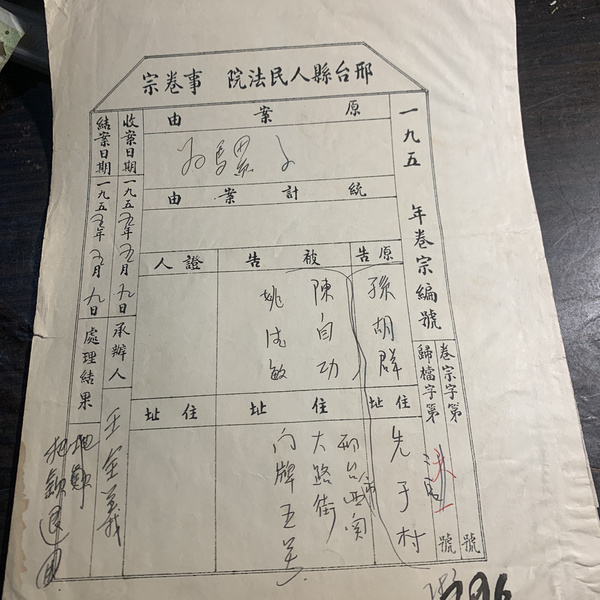 邢台縣人民法院 事卷宗
一九五 年卷宗編號
卷宗字第 號
歸檔字第 號
原案由
為騾子
統計案由
原告
孫胡群
被告
陳自功
姚成敏
證人
住址
先子村
住址
邢台市西南
大路街
門牌五号
住址
收案日期一九五 年五月九日
承辦人
王金義
結案日期一九五 年 月九日
處理結果